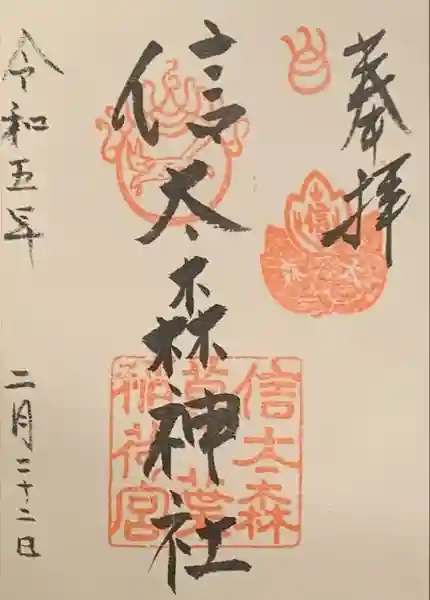 奉拝
信太森神社
信太森
葛葉
稲荷宮
令和五年
二月二十二日